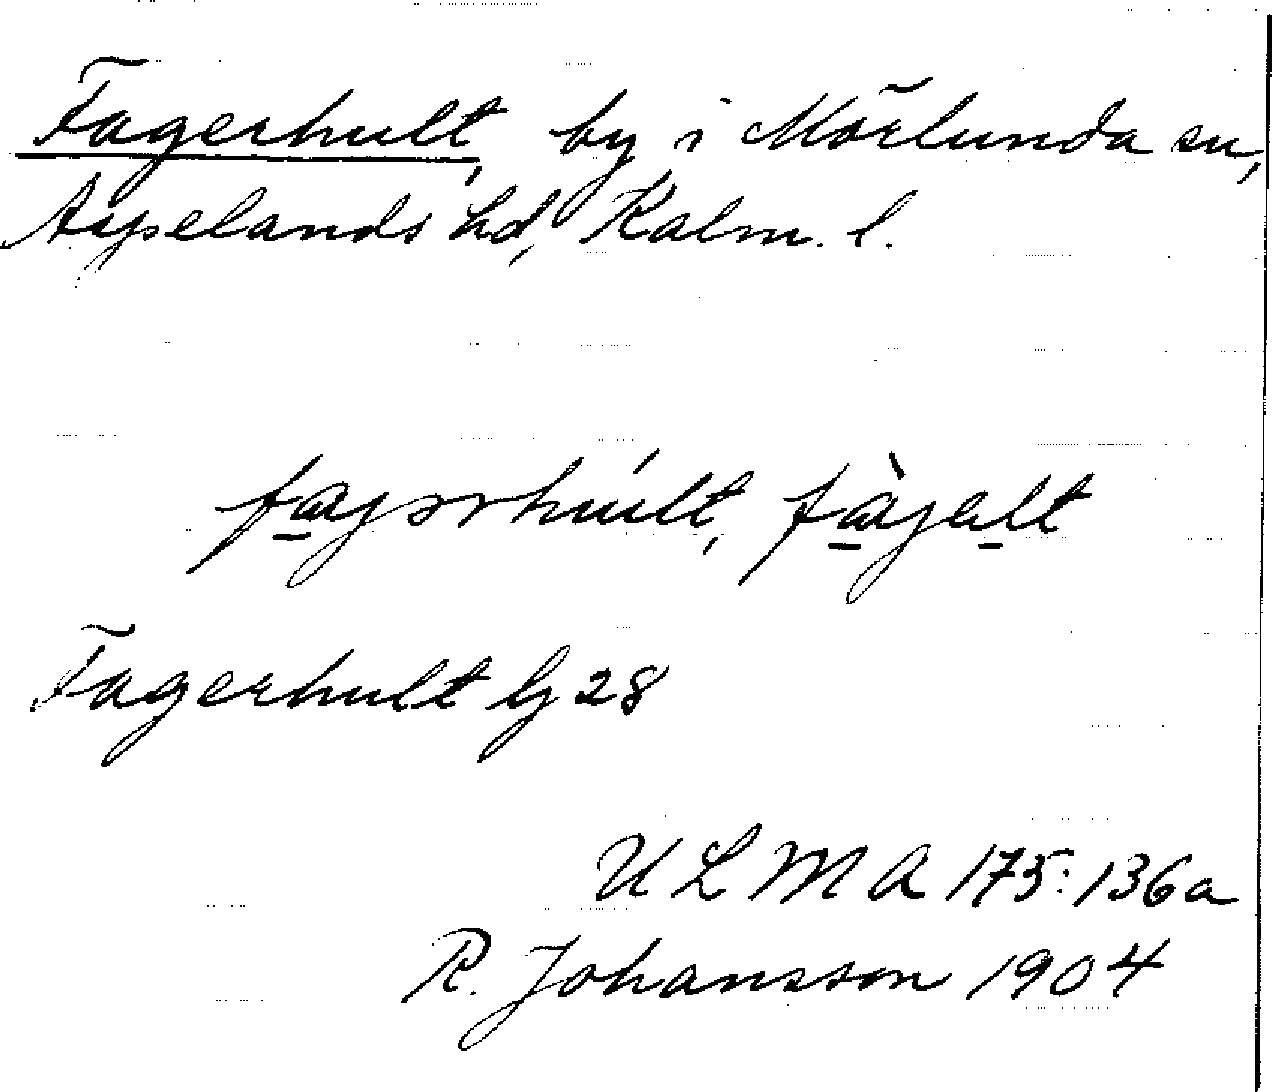 Fagerhult, by i Mörlunda sn,
Aspelands hd, Kalm. l.
fagərhúlt, fàgalt
Fagerhult Gj 28
ULMA 175:136a
R. Johansson 1904